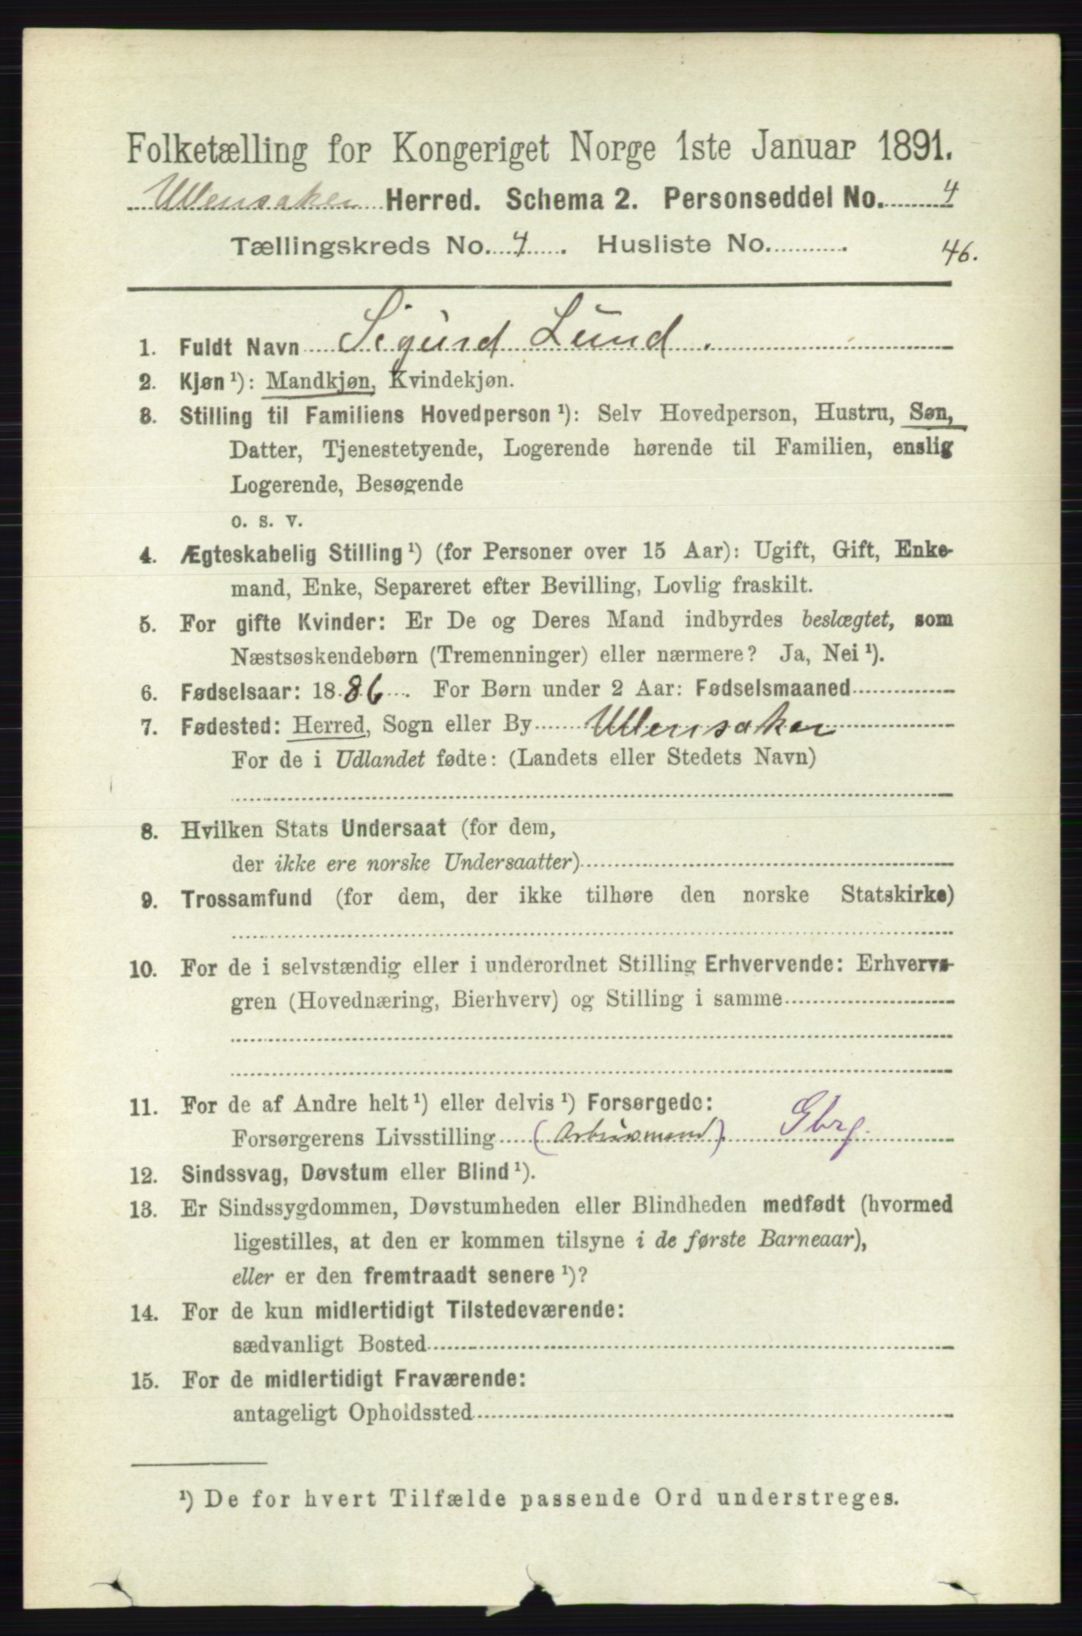 Folketælling for Kongeriget Norge 1ste Januar 1891.
Ullensaker Herred. Schema 2. Personseddel No. 4
Tællingskreds No. 4. Husliste No. 46.
1. Fuldt Navn Sigurd Lund.
2. Kjøn ¹): Mandkjøn, Kvindekjøn.
3. Stilling til Familiens Hovedperson ¹): Selv Hovedperson, Hustru, Søn,
Datter, Tjenestetyende, Logerende hørende til Familien, enslig
Logerende, Besøgende
o. s. v.
4. Ægteskabelig Stilling ¹) (for Personer over 15 Aar): Ugift, Gift, Enke-
mand, Enke, Separeret efter Bevilling, Lovlig fraskilt.
5. For gifte Kvinder: Er De og Deres Mand indbyrdes beslægtet, som
Næstsøskendebørn (Tremenninger) eller nærmere? Ja, Nei ¹).
6. Fødselsaar: 1886. For Børn under 2 Aar: Fødselsmaaned
7. Fødested: Herred, Sogn eller By Ullensaker
For de i Udlandet fødte: (Landets eller Stedets Navn)
8. Hvilken Stats Undersaat (for dem,
der ikke ere norske Undersaatter)
9. Trossamfund (for dem, der ikke tilhøre den norske Statskirke)
10. For de i selvstændig eller i underordnet Stilling Erhvervende: Erhvervs-
gren (Hovednæring, Bierhverv) og Stilling i samme
11. For de af Andre helt ¹) eller delvis ¹) Forsørgede:
Forsørgerens Livsstilling (Arbeidsmand) Gbrg.
12. Sindssvag, Døvstum eller Blind ¹).
13. Er Sindssygdommen, Døvstumheden eller Blindheden medfødt (hvormed
ligestilles, at den er kommen tilsyne i de første Barneaar),
eller er den fremtraadt senere ¹)?
14. For de kun midlertidigt Tilstedeværende:
sædvanligt Bosted
15. For de midlertidigt Fraværende:
antageligt Opholdssted
¹) De for hvert Tilfælde passende Ord understreges.